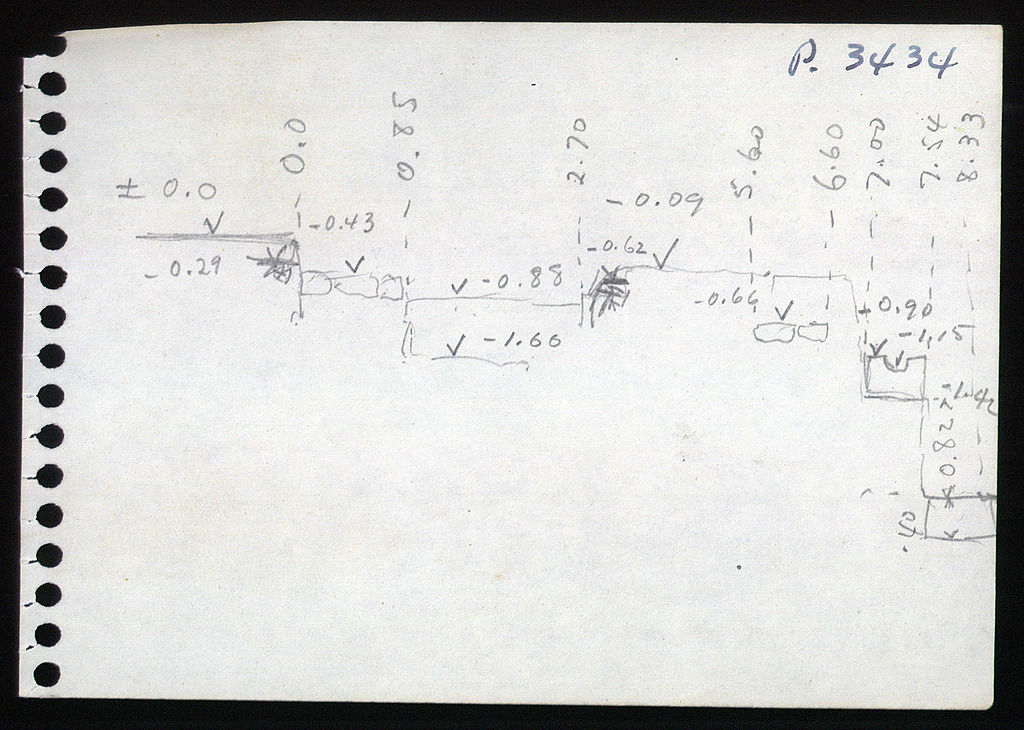 P. 3434
0.0
0.85
2.70
5.60
6.60
7.00
7.54
8.33
± 0.0
-0.43
- 0.09
- 0.29
-0.62
-0.88
-0.66
-0.90
-1.15
-1.66
-1.42
0.82
.40